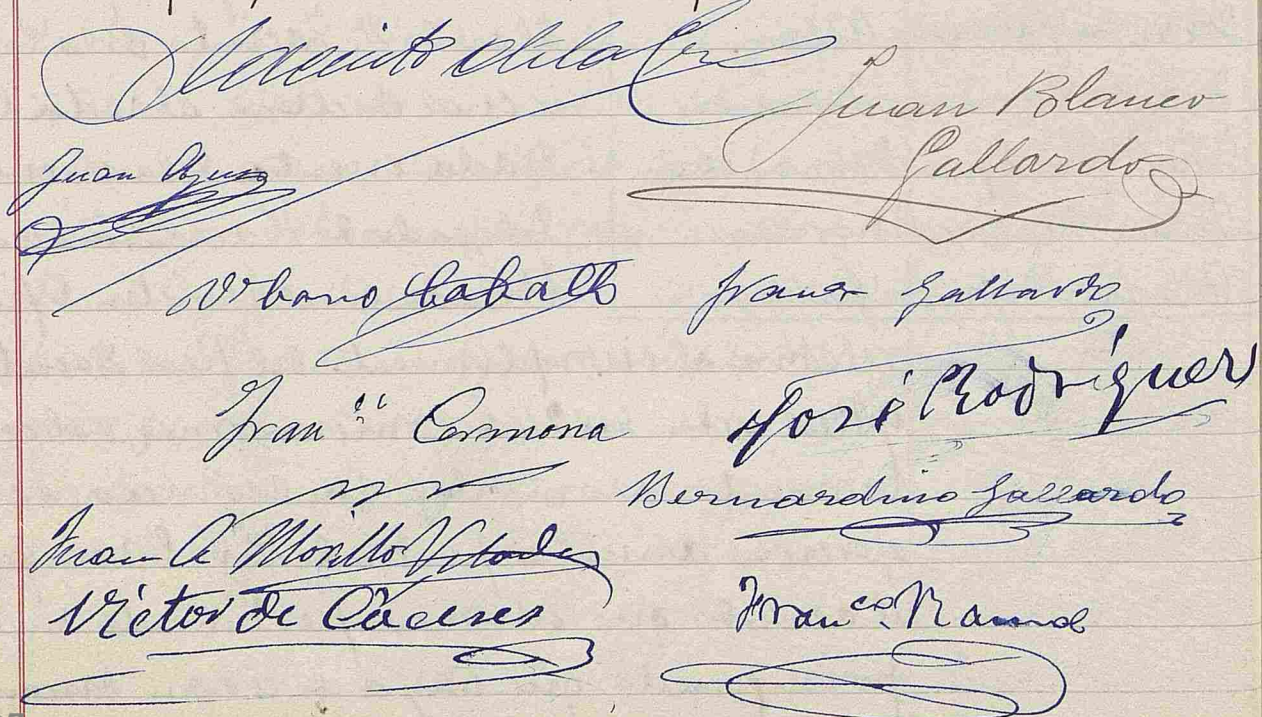 Jacinto de la Cruz
Juan Blanco
Gallardo
Juan
Urbano Caballo
Franco Gallardo
Franco Carmona
José Rodríguez
Bernardino Gallardo
Juan A Morillo
Victor de Cáceres
Franco. Ramos